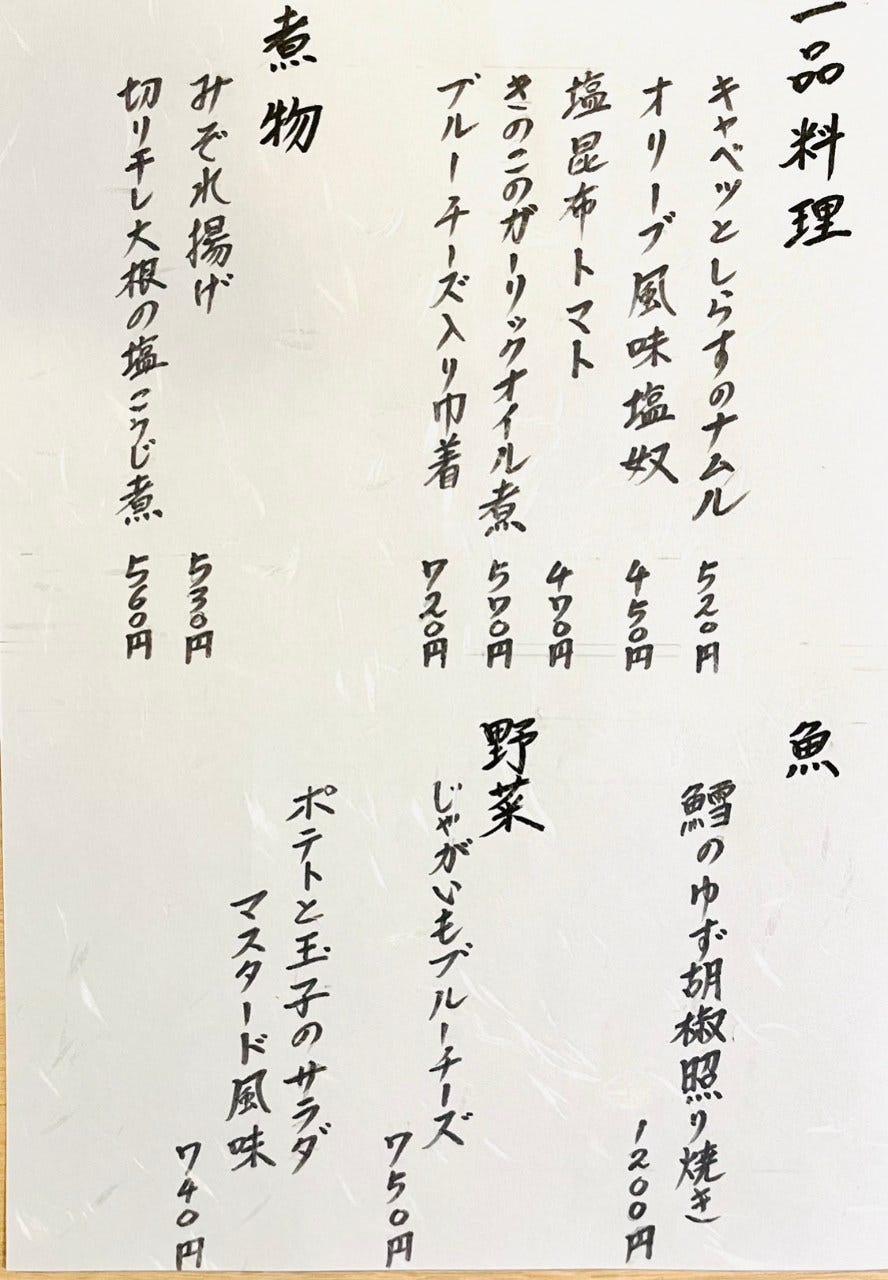 一品料理
キャベツとしらすのナムル
520円
オリーブ風味塩奴
450円
塩昆布トマト
470円
きのこのガーリックオイル煮
570円
ブルーチーズ入り巾着
720円
煮物
みぞれ揚げ
530円
切り干し大根の塩こうじ煮
560円
魚
鱈のゆず胡椒照り焼き
1200円
野菜
じゃがいもブルーチーズ
750円
ポテトと玉子のサラダ
マスタード風味
740円